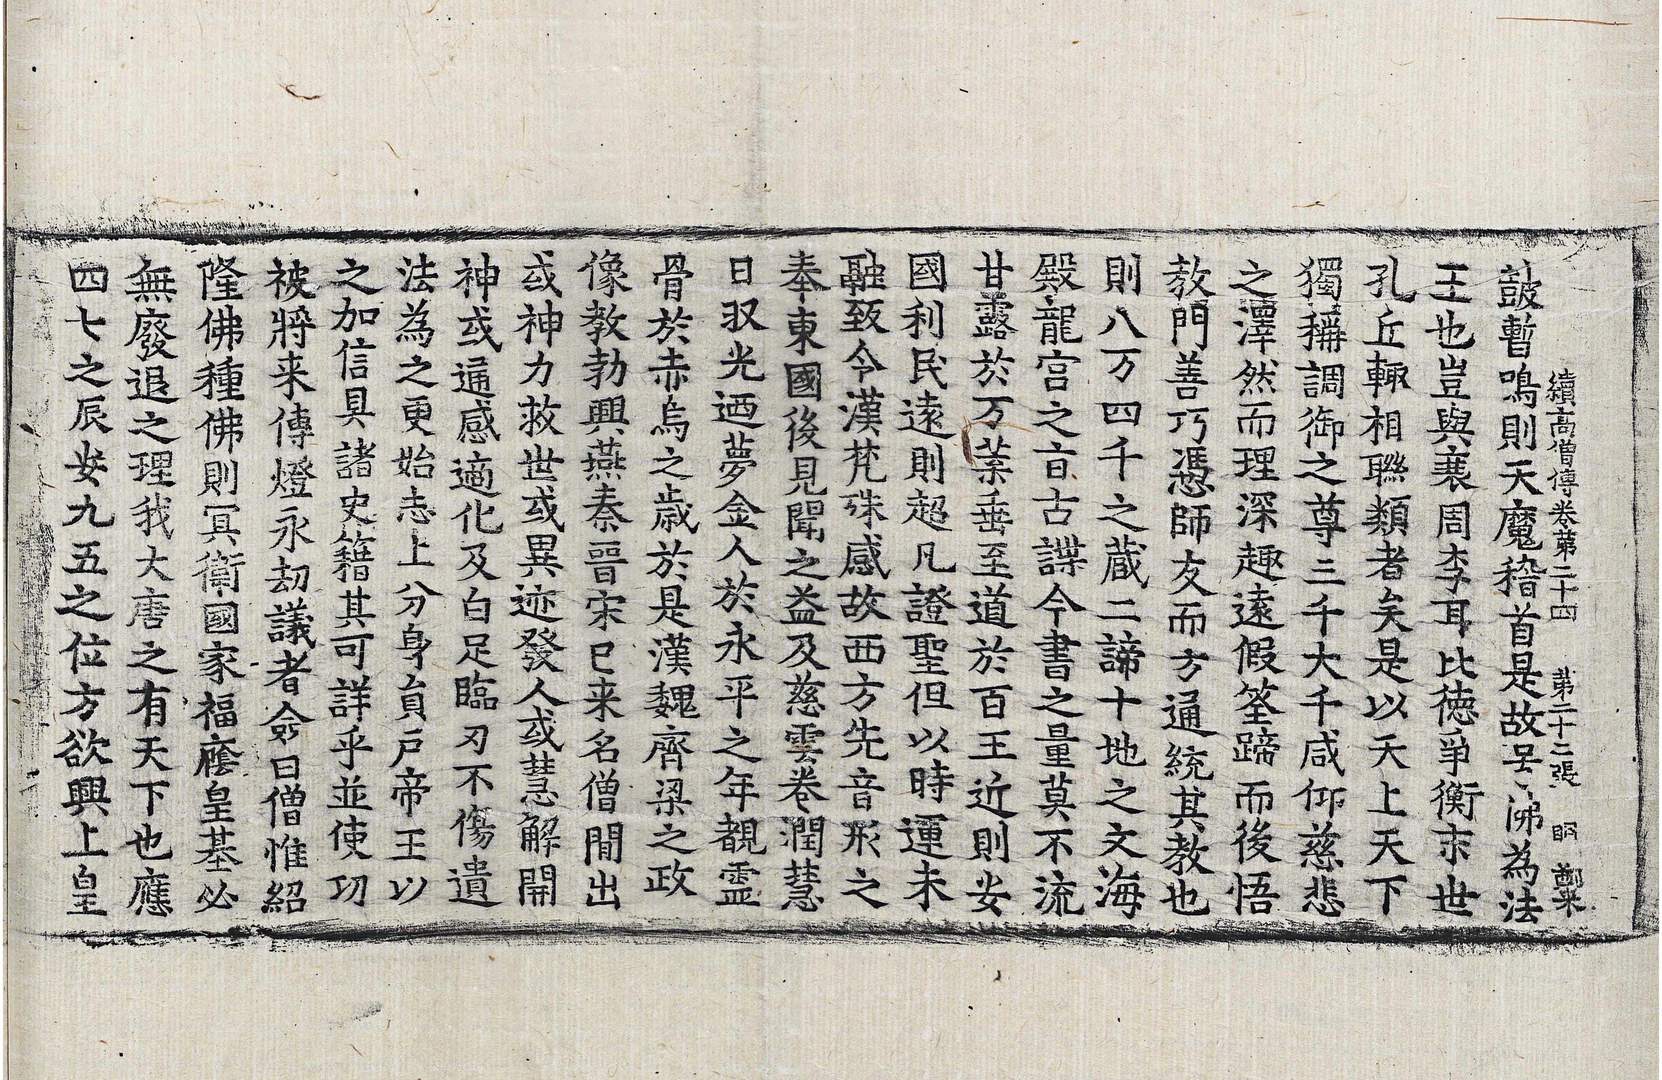 續高僧傳卷第二十四 第二十二張 明
鼓暫鳴則天魔稽首是故号佛為法
王也豈與衰周李耳比德爭衡末世
孔丘輙相聯類者矣是以天上天下
獨稱調御之尊三千大千咸仰慈悲
之澤然而理深趣遠假筌蹄而後悟
教門善巧憑師友而方通統其教也
則八万四千之蔵二諦十地之文海
殿龍宮之旨古諜今書之量莫不流
甘露於万葉垂至道於百王近則安
國利民遠則超凡證聖但以時運未
融致令漢梵殊感故西方先音形之
奉東國後見聞之益及慈雲卷潤慧
日収光迺夢金人於永平之年覩霊
骨於赤烏之歲於是漢魏齊梁之政
像教勃興燕秦晉宋已来名僧間出
或神力救世或異迹發人或慧解開
神或通感適化及白足臨刃不傷遺
法為之更始志上分身員戶帝王以
之加信具諸史籍其可詳乎並使功
被將来傳燈永劫議者僉曰僧惟紹
隆佛種佛則冥衛國家福䕃皇基必
無廢退之理我大唐之有天下也應
四七之辰安九五之位方欲興上皇